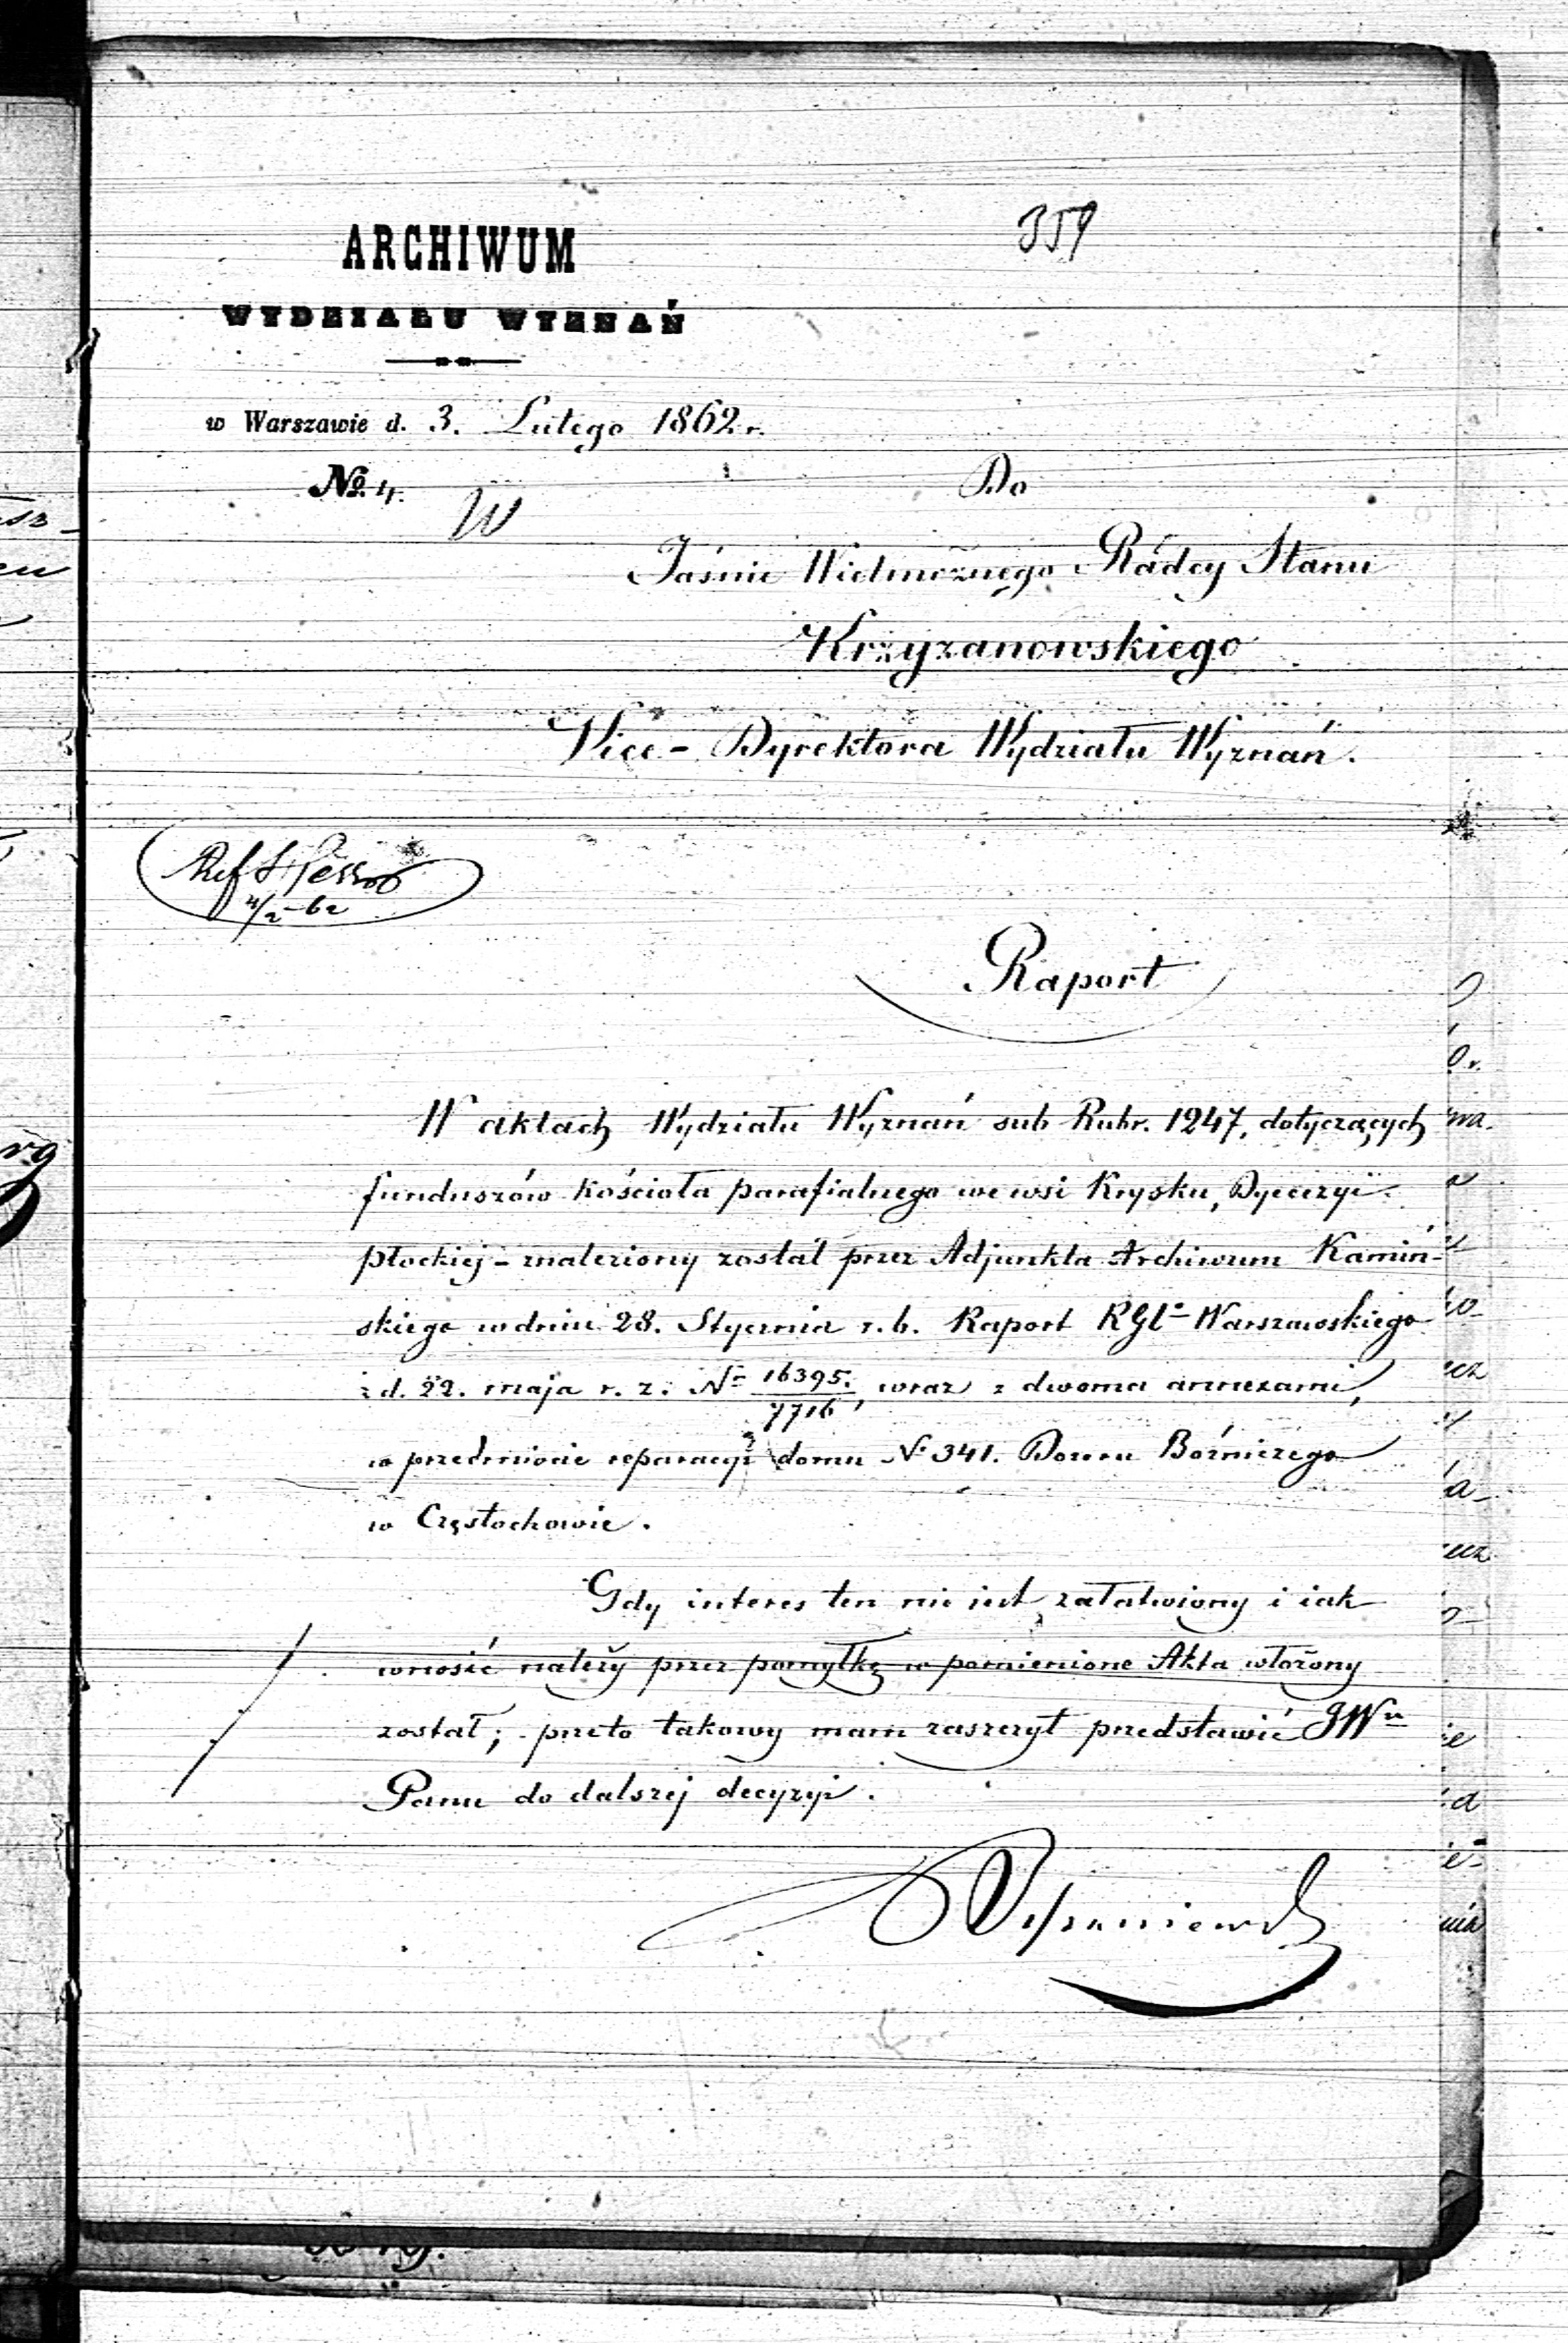 359
ARCHIWUM
WYDZIAŁU WYZNAŃ
w Warszawie d. 3. Lutego 1862 r.
No. 4.
W
Do
Jaśnie Wielmożnego Radcy Stanu
Krzyzanowskiego
Vice - Dyrektora Wydziału Wyznań.
Ref
4/2 62
Raport
W aktach Wydziału Wyznań sub Rubr. 1247. dotyczących
funduszów kościoła parafialnego we wsi Krysku, Dyecezyi
płockiej - znaleziony został przez Adjunkta Archiwum Kamiń-
skiego w dniu 28. Stycznia r. b. Raport RGl Warszawskiego
z d. 22. maja r. z. No 16395./7716, wraz z dwoma annexami,
w przedmiocie reparacyi domu No 341. Dozoru Bóźniczego
w Częstochowie.
Gdy interes ten nie jest załatwiony i iak
wnosić należy przez pomyłkę w pomienione Akta włożony
został; przeto takowy mam zaszczyt przedstawić JWu
Panu do dalszej decyzyi.